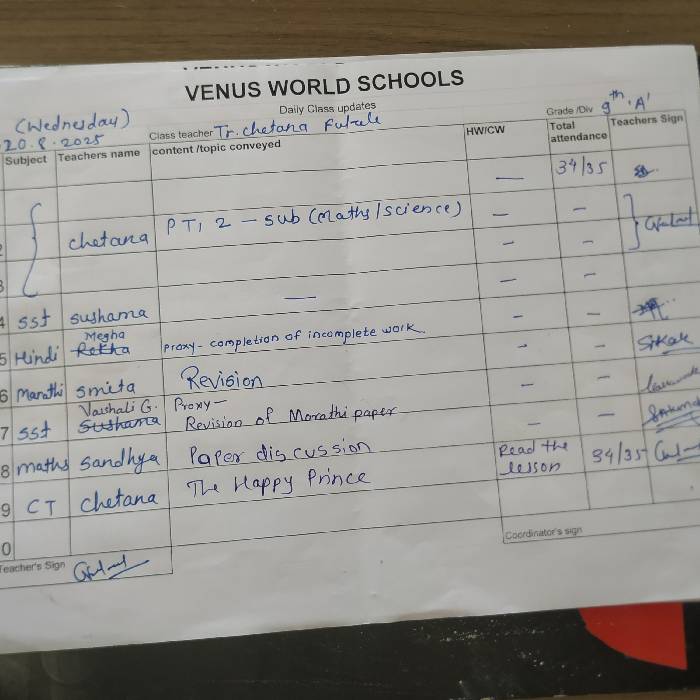 VENUS WORLD SCHOOLS
Daily Class updates
(Wednesday)
20.8.2025
Class teacher Tr. Chetana
Grade /Div 9th 'A'
Subject Teachers name content /topic conveyed HW/CW Total attendance Teachers Sign
— 34/35
chetana PT, 2 - sub (Maths/science) — —
— —
— —
4 sst sushama — — —
Megha
5 Hindi Rekha Proxy- completion of incomplete work — —
6 Marathi smita Revision — —
Vaishali G. Proxy-
7 sst Sushama Revision of Marathi paper — —
8 maths sandhya Paper discussion Read the lesson 34/35
9 CT chetana The Happy Prince
0
Teacher's Sign
Coordinator's sign